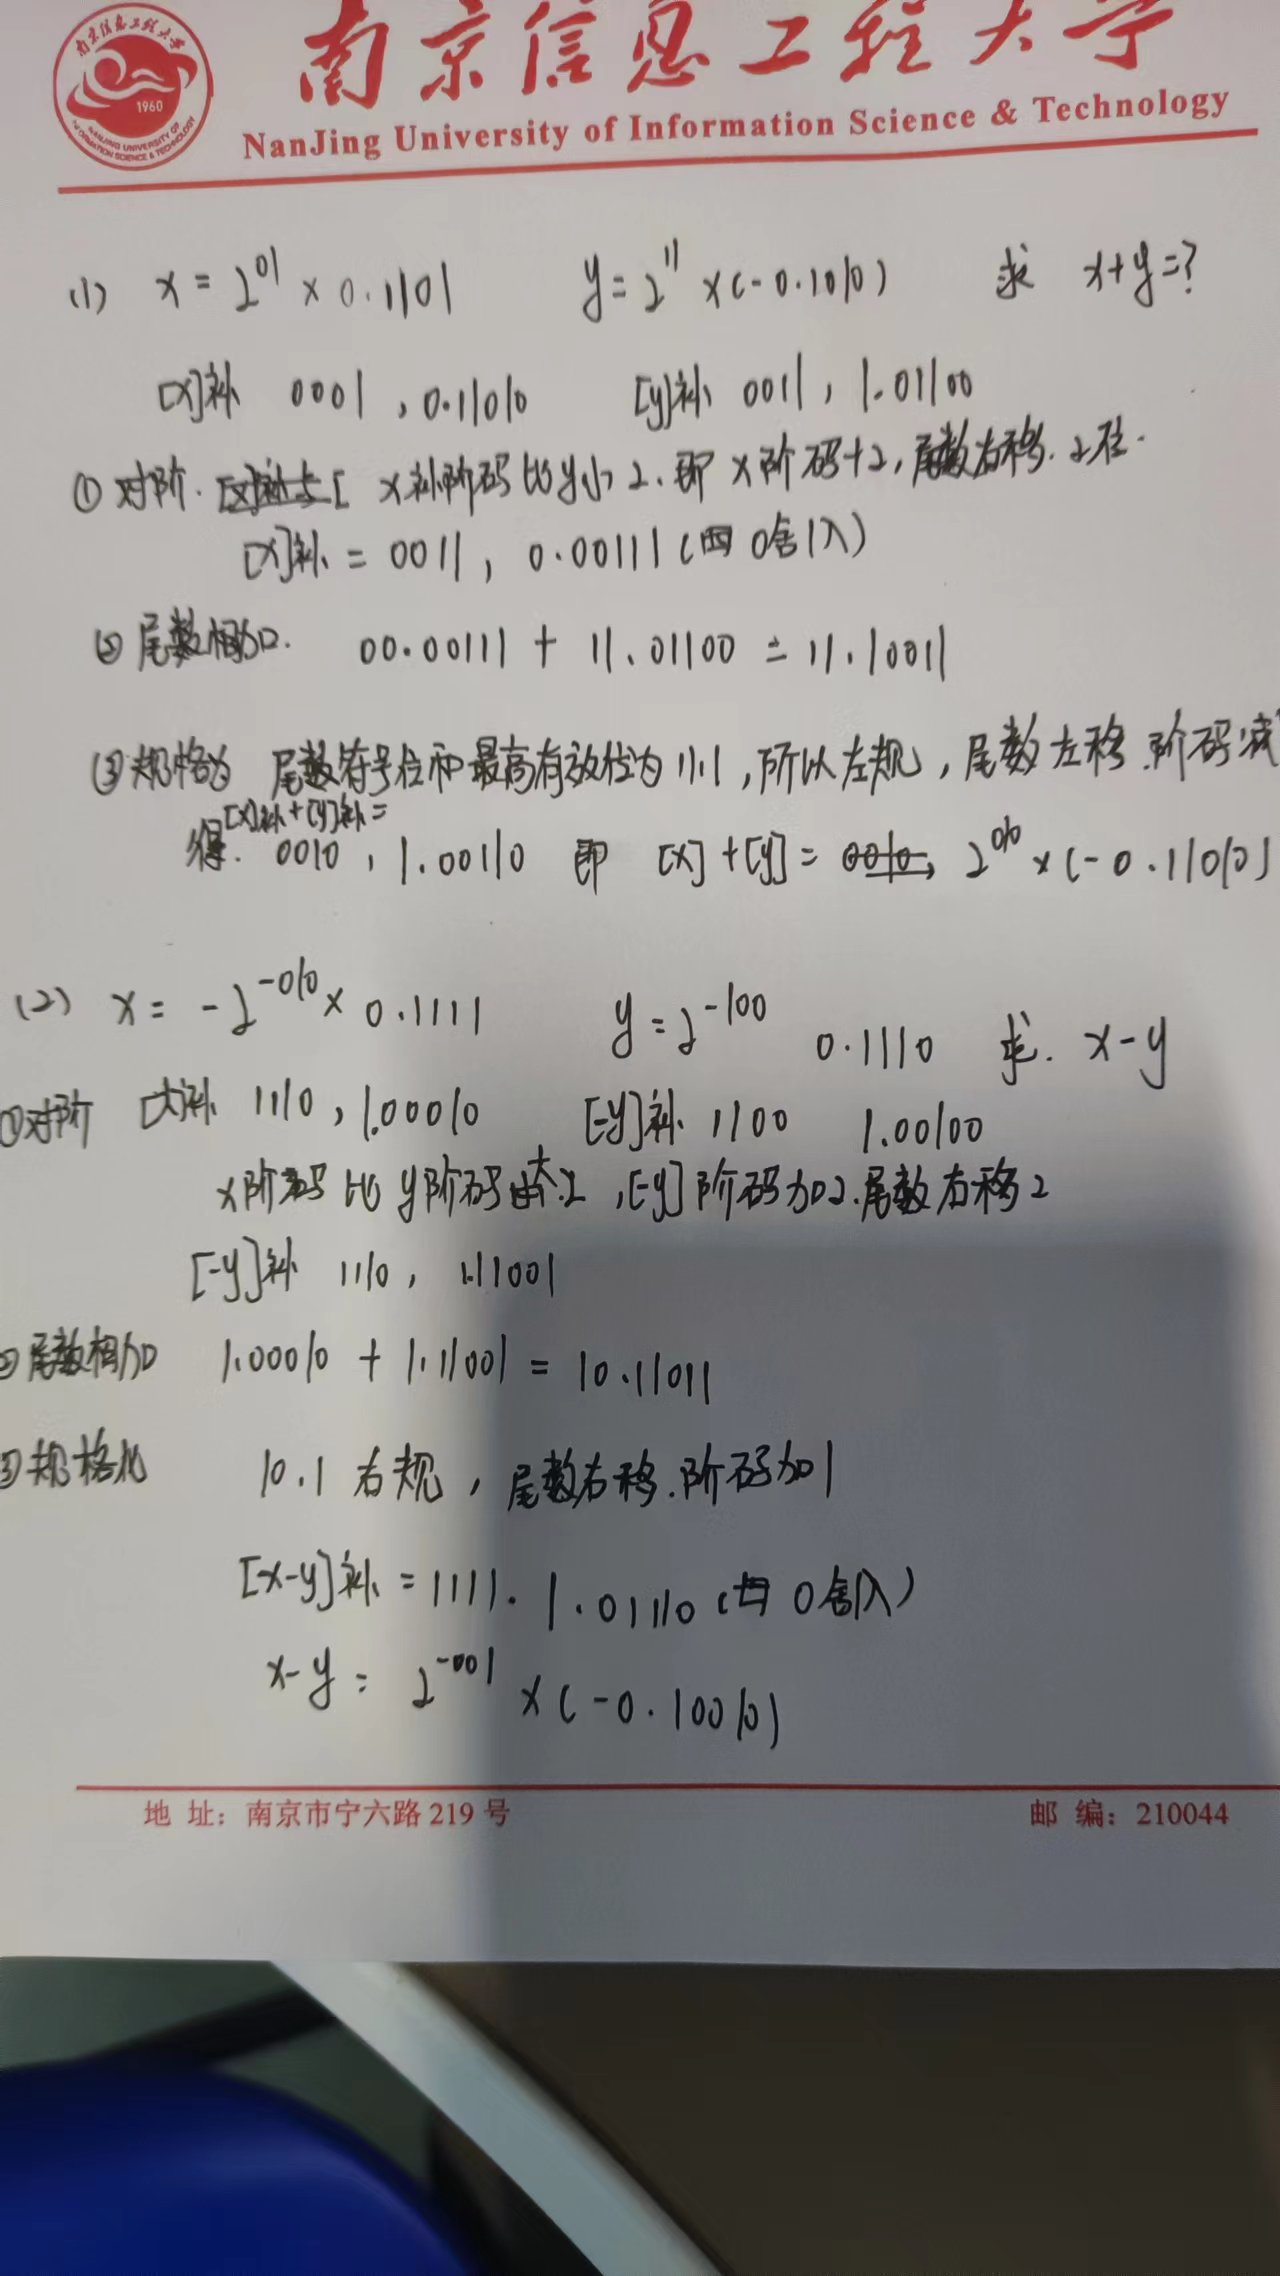 南京信息工程大学
NanJing University of Information Science & Technology
1960
(1) x = 2^01 × 0.1101 y = 2^11 × (-0.1010) 求 x+y=?
[x]补 0001, 0.11010 [y]补 0011, 1.01100
① 对阶. x补阶码比y小2. 即 x阶码+2, 尾数右移.2位.
[x]补 = 0011, 0.00111 (0舍1入)
② 尾数相加. 00.00111 + 11.01100 = 11.10011
③ 规格为 尾数符号位和最高有效位为11.1, 所以左规, 尾数左移.阶码减
[x]补+[y]补=
得. 0010, 1.00110 即 [x]+[y]= 2^010 × (-0.11010)
(2) x = -2^-010 × 0.1111 y = 2^-100 0.1110 求. x-y
①对阶 [x]补 1110, 1.00010 [-y]补 1100 1.00100
x阶码比y阶码大2, [-y]阶码加2.尾数右移2
[-y]补 1110, 1.11001
②尾数相加 1.00010 + 1.11001 = 10.11011
③规格化 10.1 右规, 尾数右移.阶码加1
[x-y]补 = 1111. 1.01110 (0舍1入)
x-y = 2^-001 × (-0.10010)
地 址: 南京市宁六路 219 号 邮 编: 210044